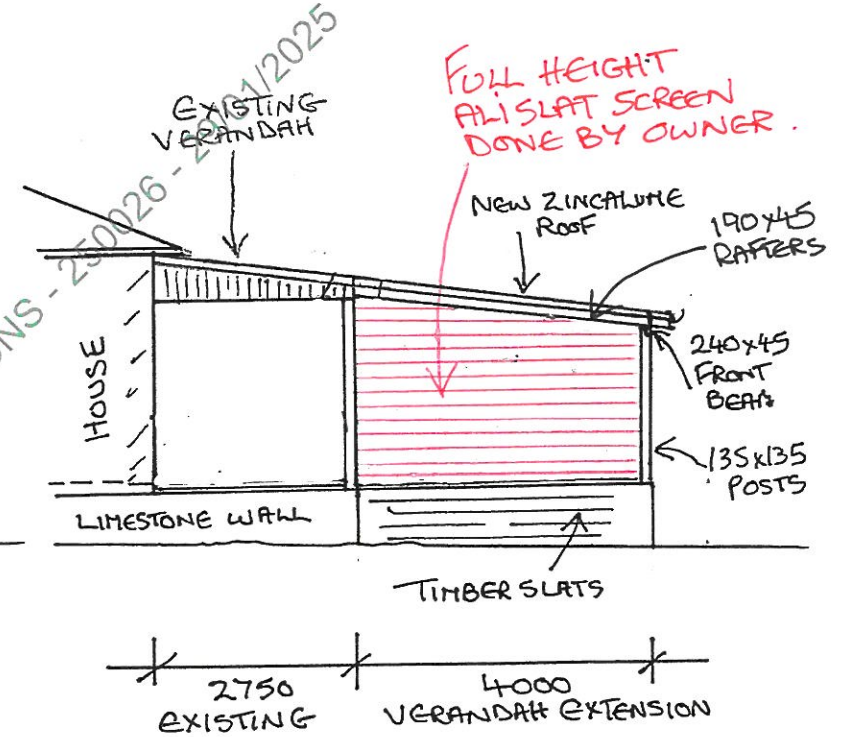 NS - 250026 - 29/01/2025
EXISTING
VERANDAH
FULL HEIGHT
ALI SLAT SCREEN
DONE BY OWNER.
NEW ZINCALUME
ROOF
190x45
RAFTERS
240x45
FRONT
BEAM
135x135
POSTS
HOUSE
LIMESTONE WALL
TIMBER SLATS
2750
EXISTING
4000
VERANDAH EXTENSION